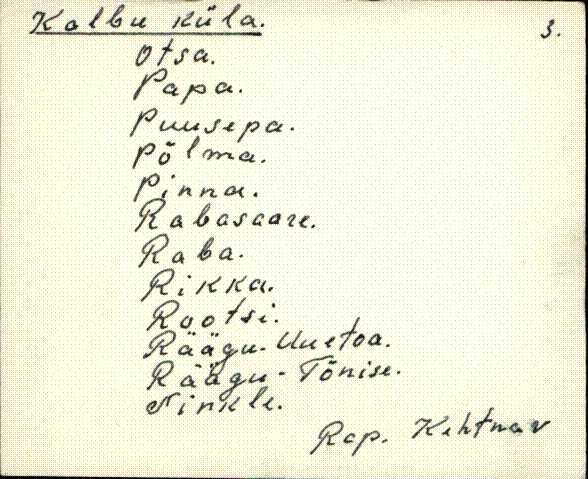 Kalbu küla.
3.
Otsa.
Papa.
Puusepa.
Põlma.
Pinna.
Rabasaare.
Raba.
Rikka.
Rootsi.
Räägu-Uuetoa.
Räägu-Tõnise.
Rap. Kehtnav